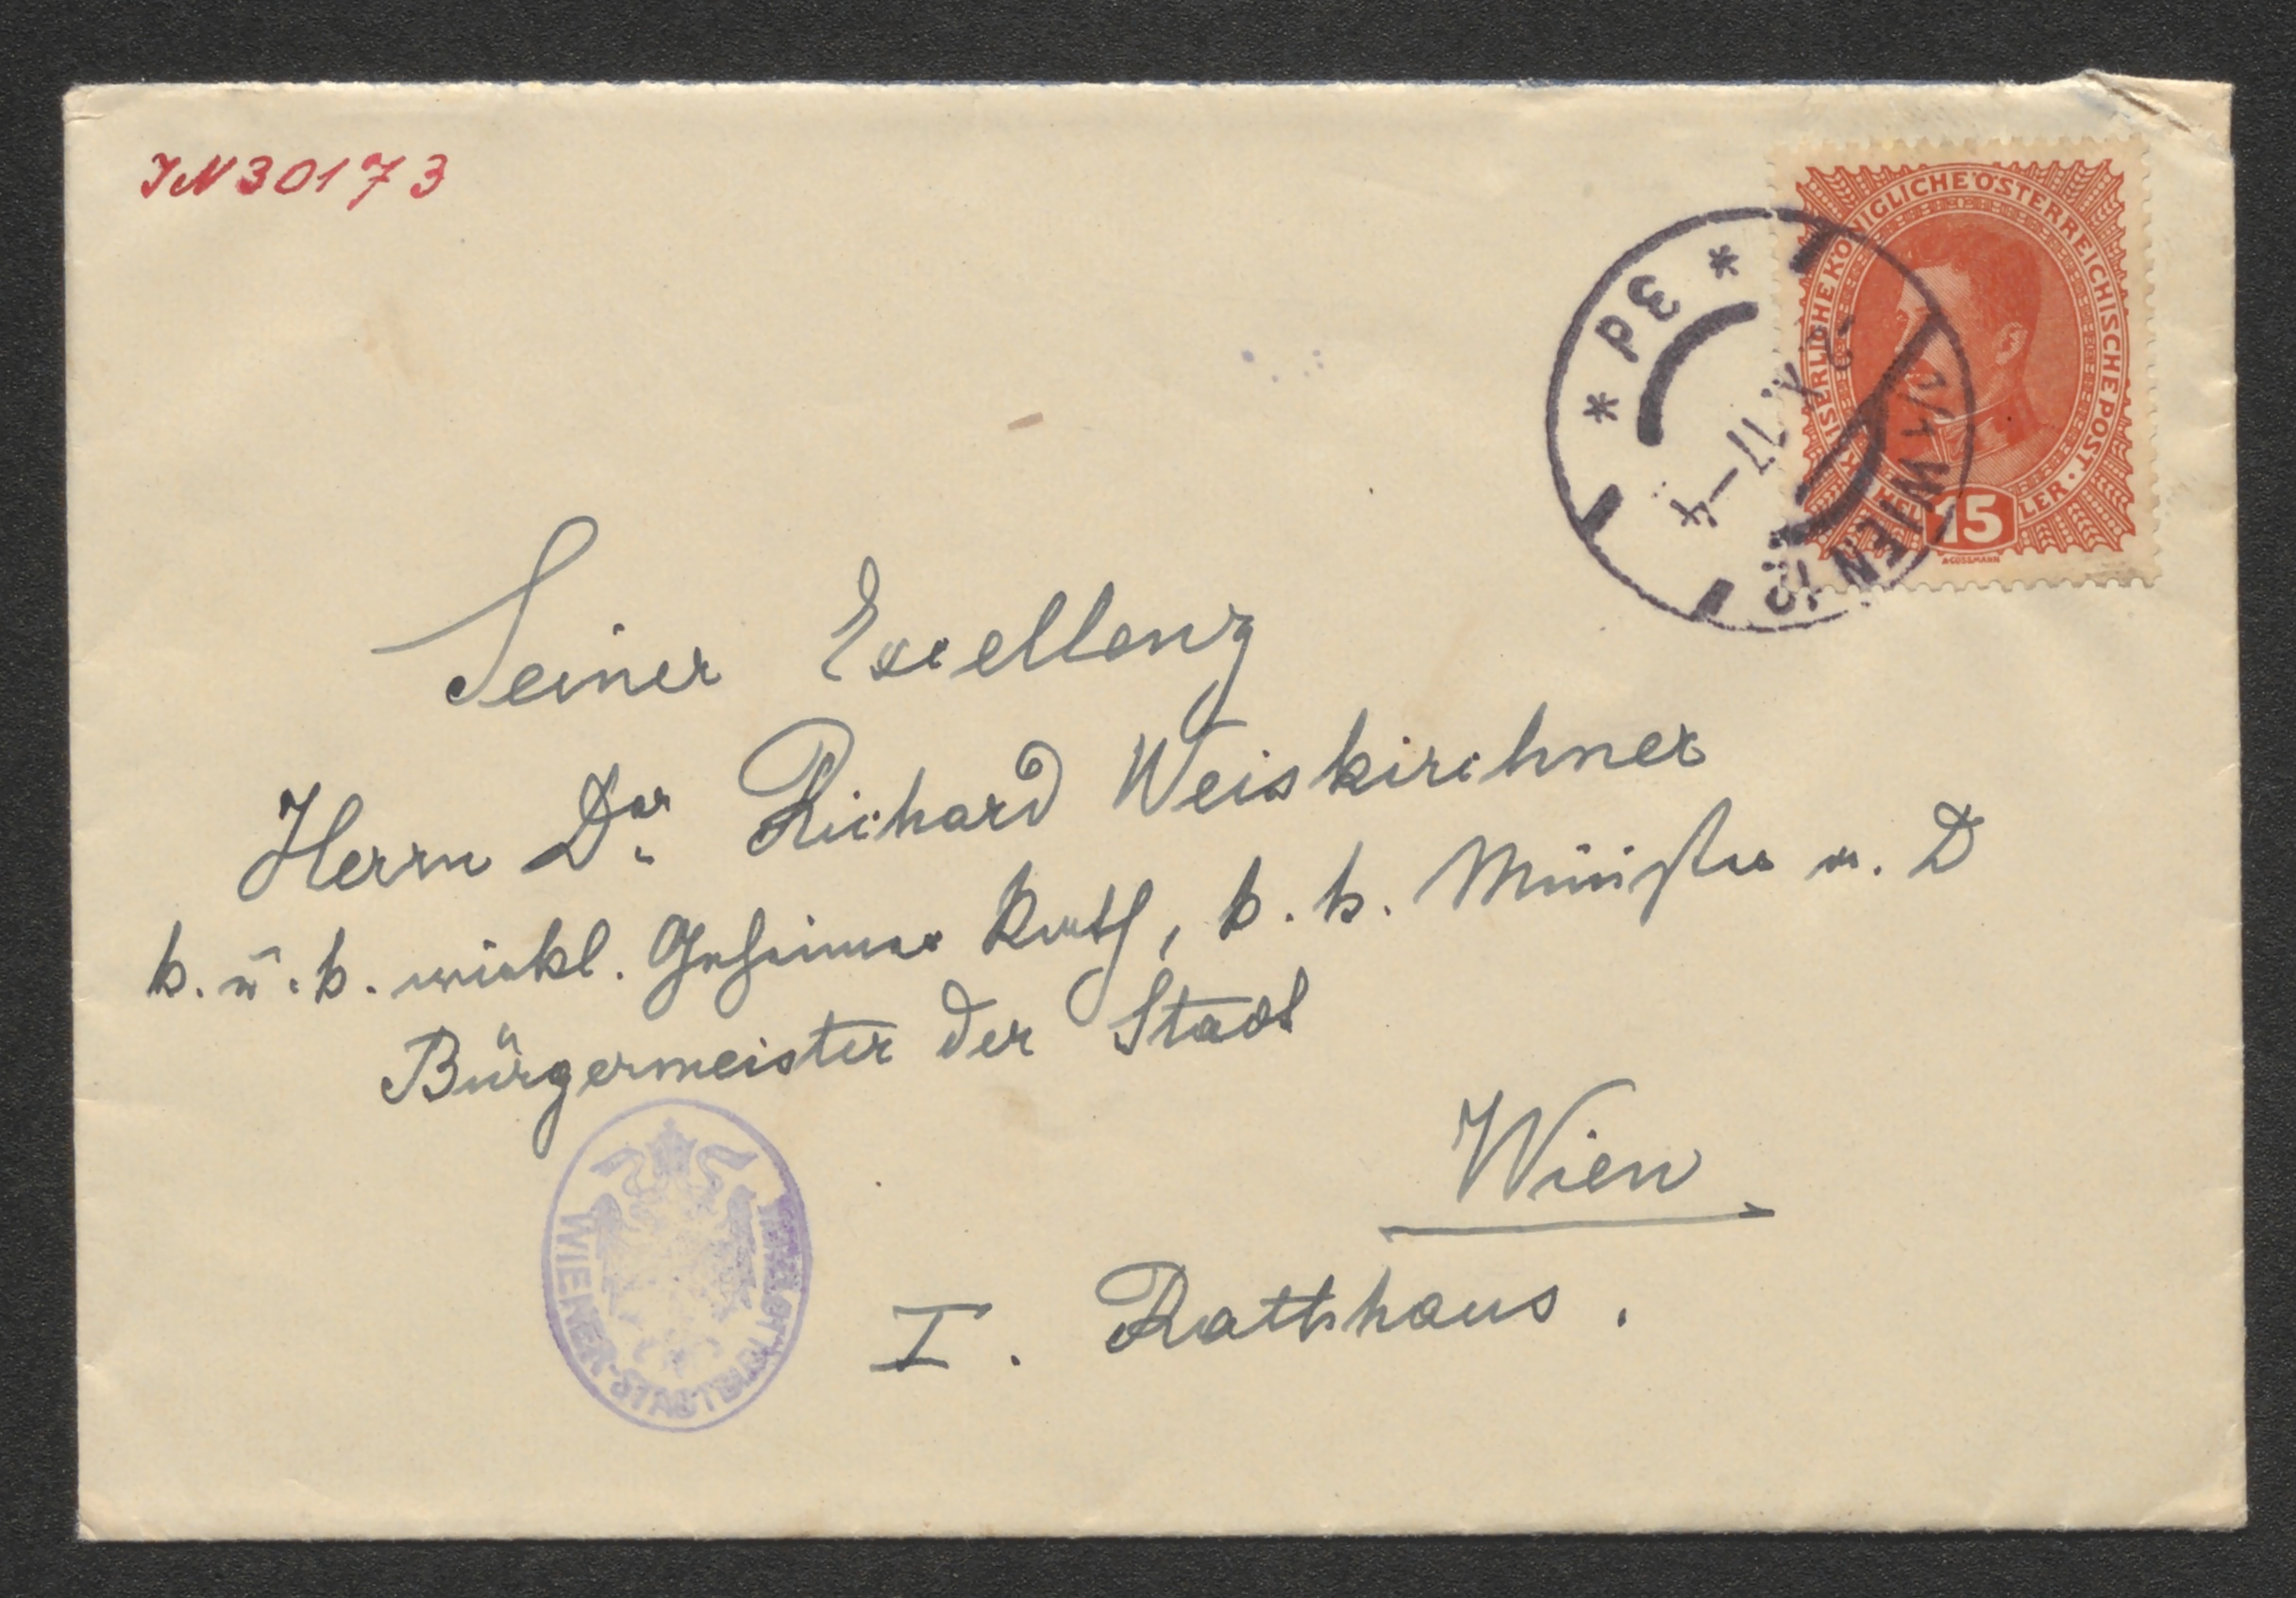 IN 30173
KAISERLICHE KÖNIGLICHE ÖSTERREICHISCHE POST ·
HELLER
15
1/1 WIEN
-2.X.17-4
* 3d *
Seiner Exellenz
Herrn Dor Richard Weiskirchner
k. u. k. wirkl. Geheimer Rath, k. k. Minister a. D
Bürgermeister der Stadt
Wien
I. Rathhaus.
WIENER STADTBIBLIOTHEK